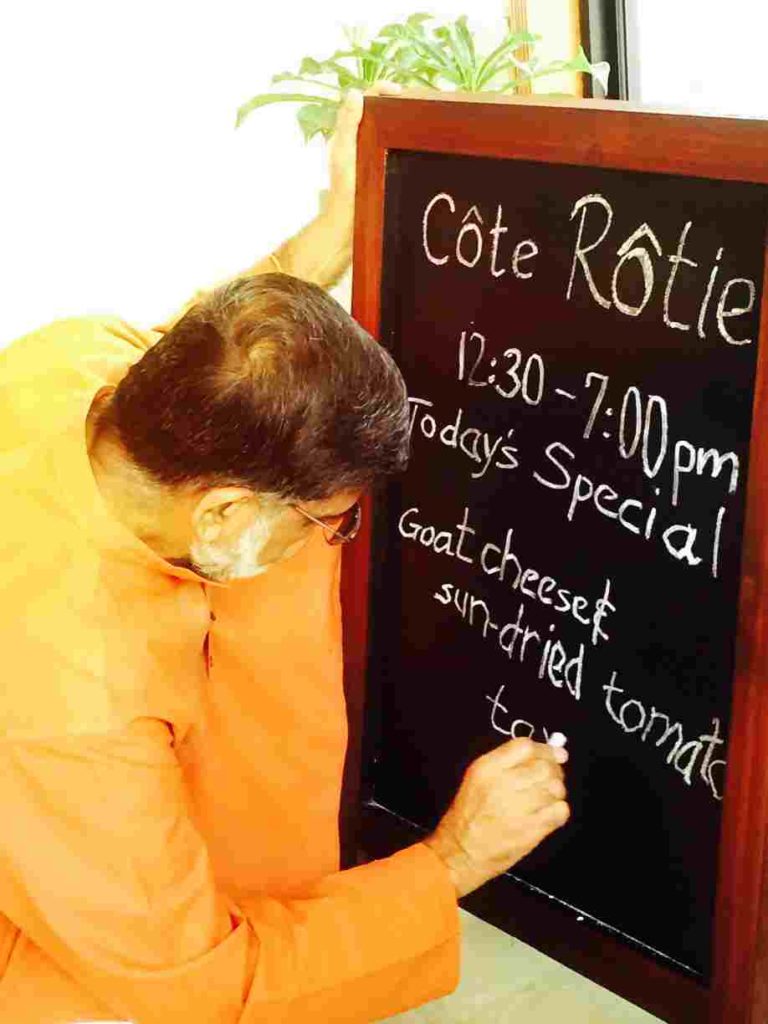 Côte Rôtie
12:30 - 7:00pm
Today's Special
Goat cheese &
sun-dried tomato